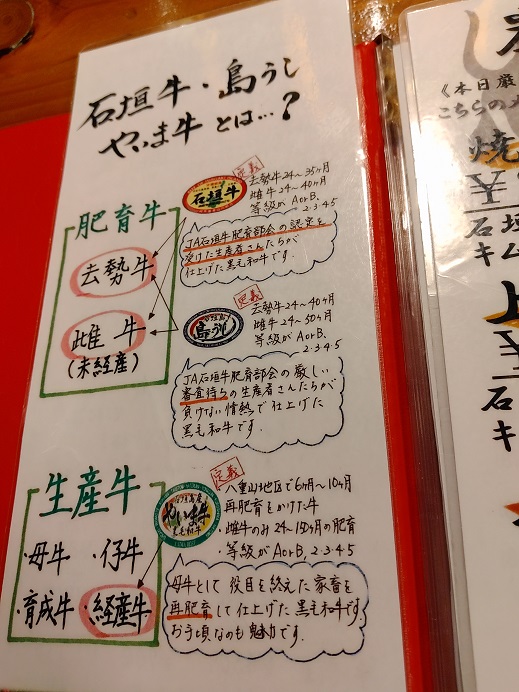 石垣牛・島うし
やいま牛とは…?
肥育牛
去勢牛
雌牛
(未経産)
石垣牛
定義
去勢牛24~35ヶ月
雌牛24~40ヶ月
等級がAorB、
2・3・4・5
JA石垣牛肥育部会の認定を
受けた生産者さんたちが
仕上げた黒毛和牛です。
定義
去勢牛24~40ヶ月
雌牛24~50ヶ月
等級がAorB、
2・3・4・5
JA石垣牛肥育部会の厳しい
審査待ちの生産者さんたちが
負けない情熱で仕上げた
黒毛和牛です。
生産牛
・母牛 ・仔牛
・育成牛 ・経産牛
やいま牛
黒毛和牛
定義
・八重山地区で6ヶ月~10ヶ月
再肥育をかけた牛
・雌牛のみ24~150ヶ月の肥育
・等級がAorB、2・3・4・5
母牛として役目を終えた家畜を
再肥育して仕上げた黒毛和牛です。
お手頃なのも魅力です。
《本日厳
こちらのメ
焼
¥
石垣
キム
上
¥
石
キ